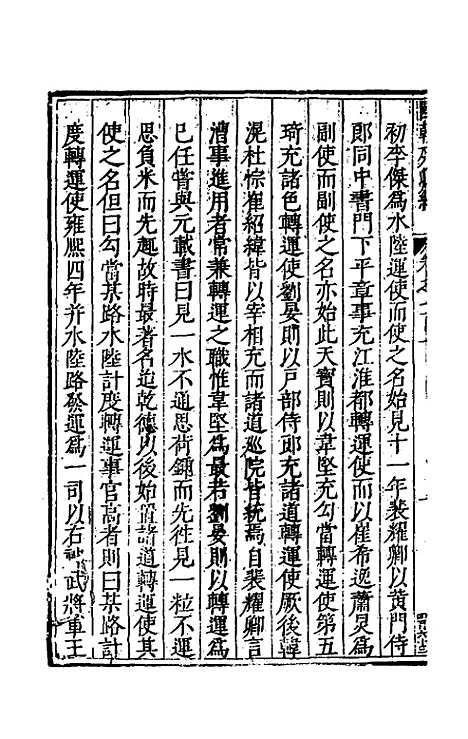 初李傑爲水陸運使而使之名始見十一年裴耀卿以黄門侍
郎同中書門下平章事充江淮都轉運使而以崔希逸蕭炅爲
副使而副使之名亦始此天寶則以韋堅充勾當轉運使第五
琦充諸色轉運使劉晏則以戸部侍郎充諸道轉運使厥後韓
滉杜悰崔紹緯皆以宰相充而諸道巡院皆統焉自裴耀卿言
漕事進用者常兼轉運之職惟韋堅爲最若劉晏則以轉運爲
已任嘗與元載書曰見一水不通思荷鍤而先徃見一粒不運
思負米而先趨故時最著名迨乾德以後始置諸道轉運使其
使之名但曰勾當某路水陸計度轉運事官高者則曰某路計
度轉運使雍熙四年并水陸路發運爲一司以右神武將軍王